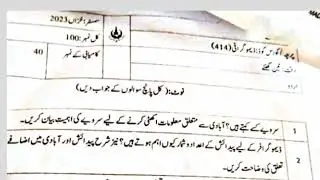 سمسٹر: خزاں 2023
پرچہ / کورس کوڈ: ڈیموگرافی (414)
کل نمبر: 100
وقت: تین گھنٹے
کامیابی کے نمبر 40
نوٹ: (کل پانچ سوالوں کے جواب دیں)
1 سروے کسے کہتے ہیں؟ آبادی سے متعلق معلومات اکٹھی کرنے کے لیے سروے کی اہمیت بیان کریں۔
2 ڈیموگرافر کے لیے پیدائش کے اعداد و شمار کیوں اہم ہوتے ہیں؟ نیز شرح پیدائش اور آبادی میں اضافے
تعلق کی وضاحت کریں۔